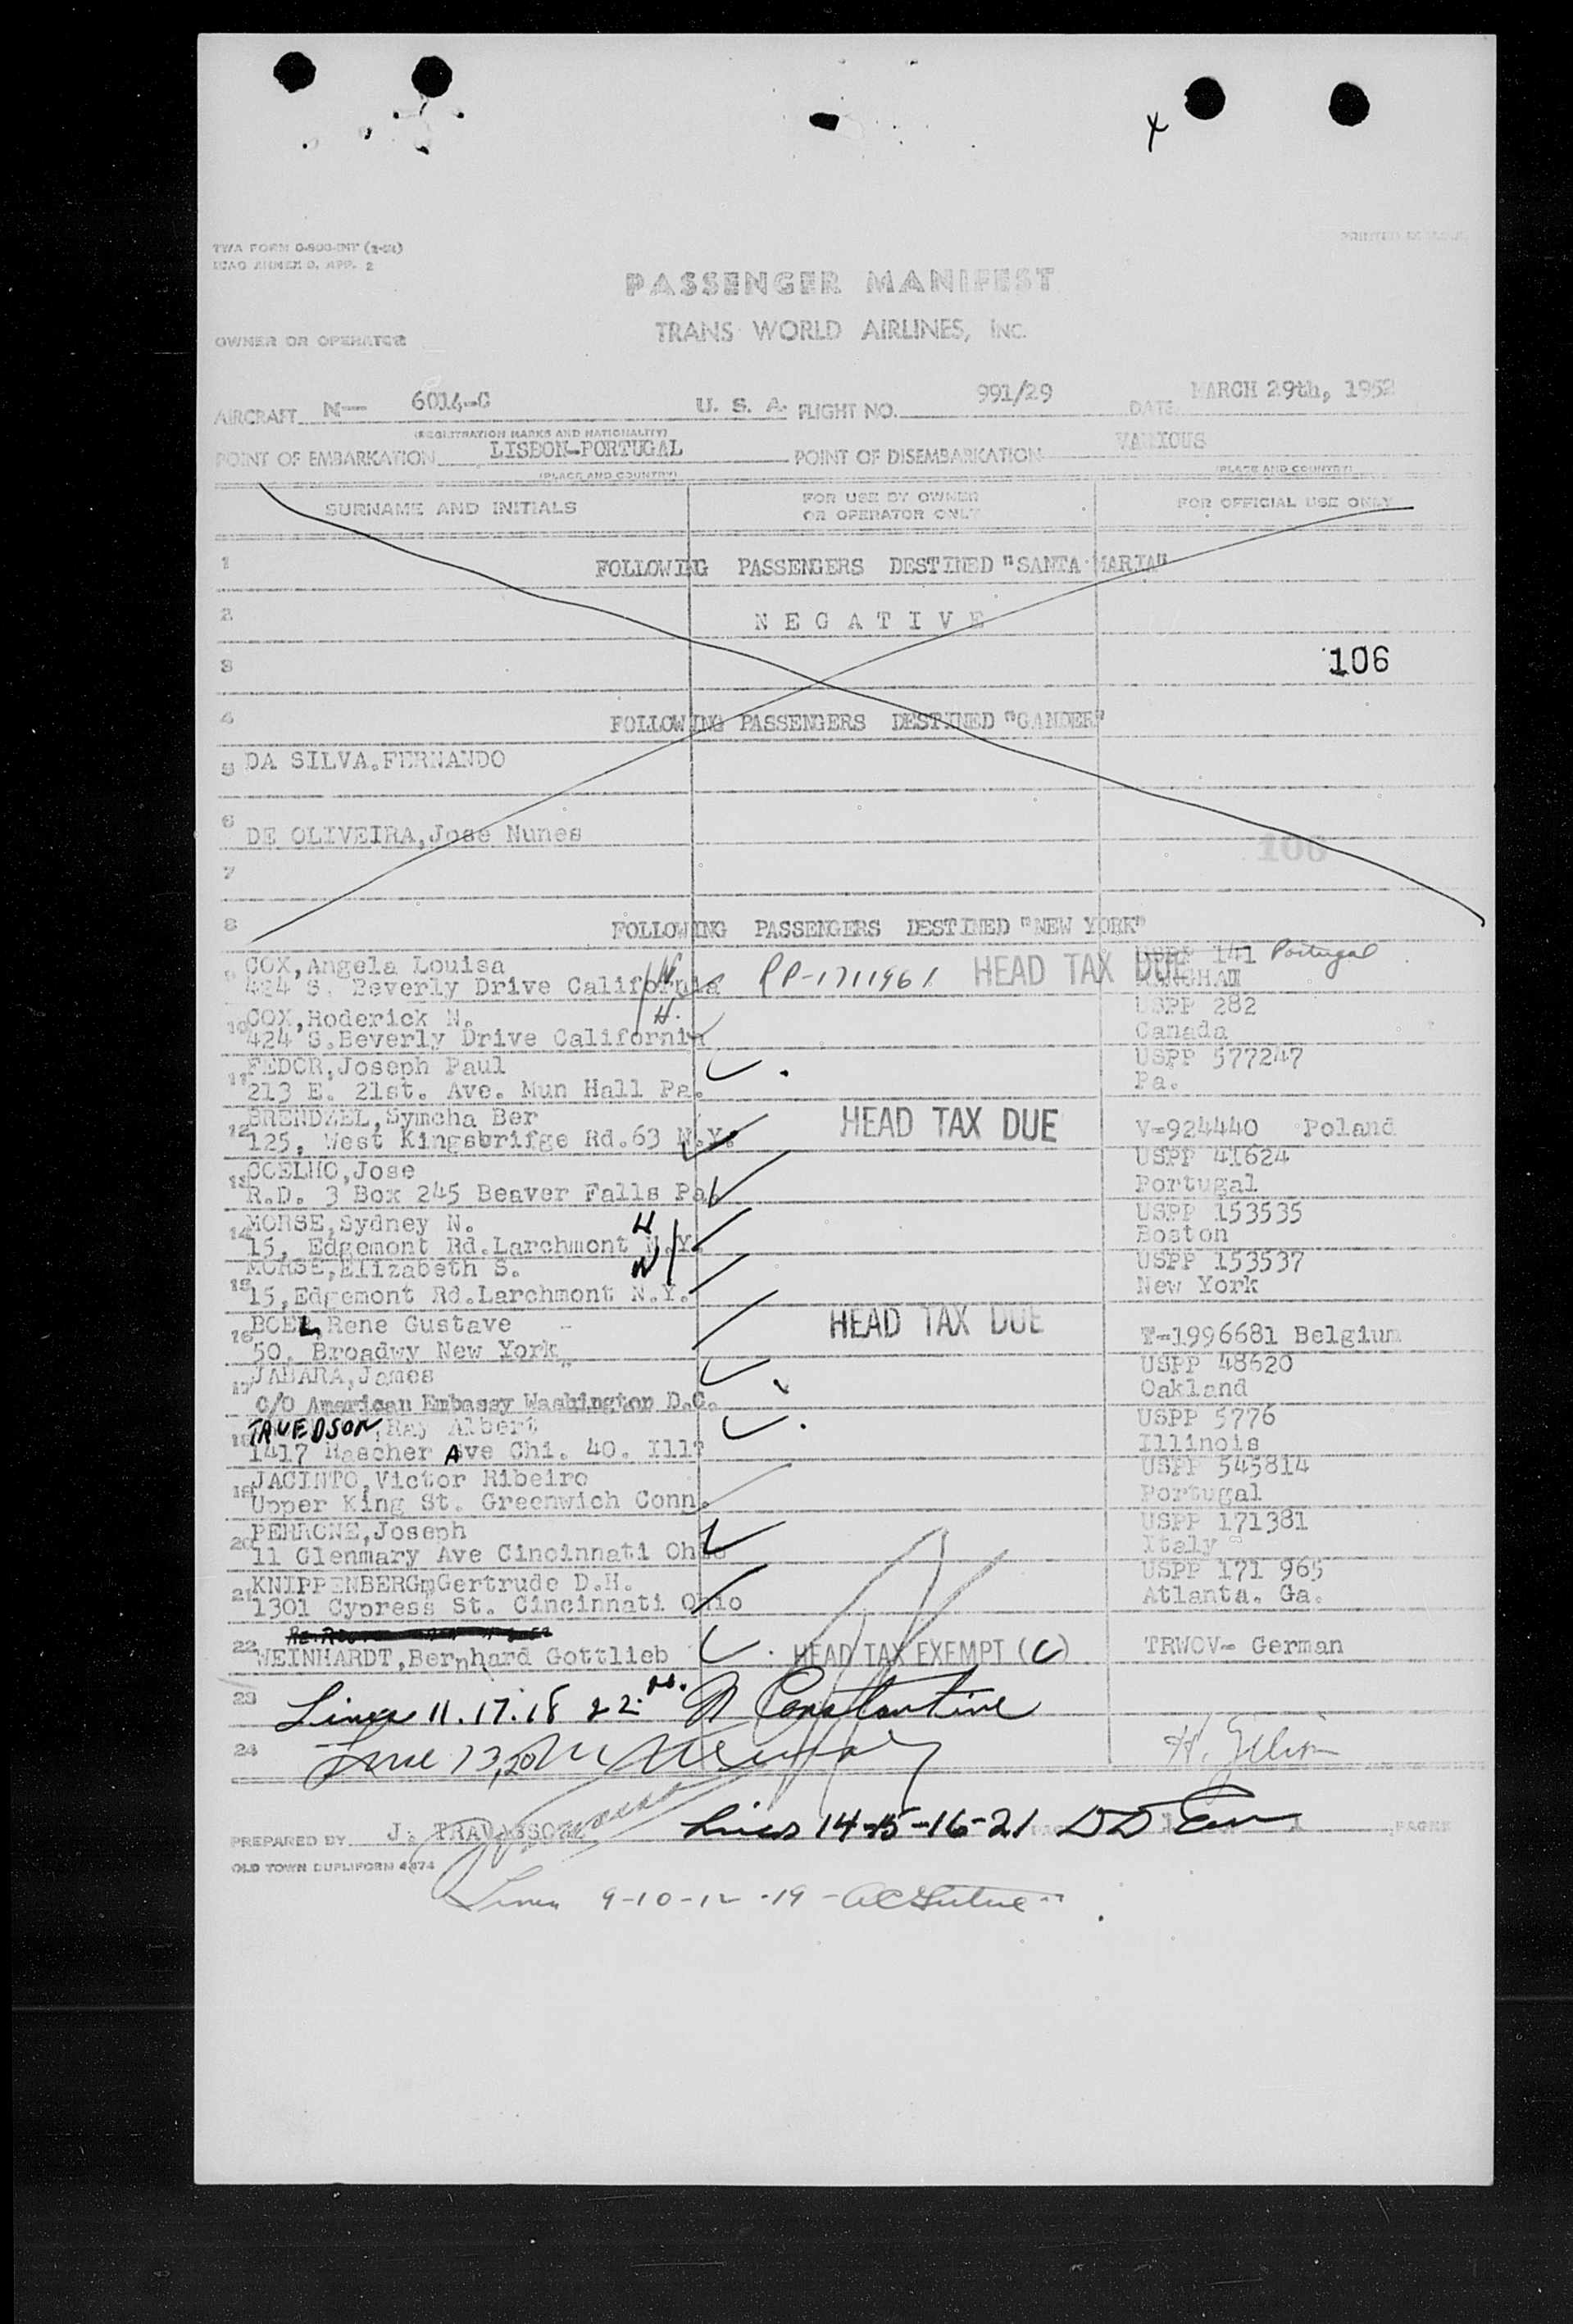 TWA FORM
ICAO ANNEX 9, APP. 2
PASSENGER MANIFEST
TRANS WORLD AIRLINES, INC.
OWNER OR OPERATOR
AIRCRAFT N- 6014-C U. S. A. FLIGHT NO. 991/29 DATE MARCH 29th, 1952
(REGISTRATION MARKS AND NATIONALITY)
POINT OF EMBARKATION LISBON-PORTUGAL POINT OF DISEMBARKATION VARIOUS
(PLACE AND COUNTRY) (PLACE AND COUNTRY)
SURNAME AND INITIALS FOR USE BY OWNER OR OPERATOR ONLY FOR OFFICIAL USE ONLY
1 FOLLOWING PASSENGERS DESTINED "SANTA MARIA"
2 N E G A T I V E
3 106
4 FOLLOWING PASSENGERS DESTINED "GANDER"
5 DA SILVA.FERNANDO
6 DE OLIVEIRA,Jose Nunes
106
7
8 FOLLOWING PASSENGERS DESTINED "NEW YORK"
9 COX,Angela Louisa W USPP 141 Portugal
424 S. Beverly Drive California PP-1711961 HEAD TAX DUE
10 COX,Roderick N. H. USPP 282
424 S.Beverly Drive California Canada
11 FEDOR,Joseph Paul USPP 577247
213 E. 21st. Ave. Mun Hall Pa. Pa.
12 BRENDZEL,Symcha Ber HEAD TAX DUE V-924440 Poland
125, West Kingsbrifge Rd.63 N.Y.
13 COELHO,Jose USPP 41624
R.D. 3 Box 245 Beaver Falls Pa. Portugal
14 MORSE,Sydney N. H USPP 153535
15, Edgemont Rd.Larchmont N.Y. Boston
15 MORSE,Elizabeth S. W USPP 153537
15,Edgemont Rd.Larchmont N.Y. New York
16 BOEL,Rene Gustave HEAD TAX DUE T-1996681 Belgium
50, Broadwy New York
17 JABARA,James USPP 48620
C/O American Embassy Washington D.C. Oakland
18 TAVEDSON,Ray Albert USPP 5776
1417 Hascher Ave Chi. 40. Ill? Illinois
19 JACINTO,Victor Ribeiro USPP 545814
Upper King St. Greenwich Conn. Portugal
20 PERRONE,Joseph USPP 171381
11 Glenmary Ave Cincinnati Ohio Italy
21 KNIPPENBERGmGertrude D.H. USPP 171 965
1301 Cypress St. Cincinnati Ohio Atlanta. Ga.
22 WEINHARDT,Bernhard Gottlieb HEAD TAX EXEMPT (C) TRWOV- German
23 Lines 11.17.18 22. N Constantine
24 Line 13,20
PREPARED BY J. TRAVASSOS Lines 14-15-16-21 1 1 PAGES
OLD TOWN DUPLIFORM 4474
Lines 9-10-12-19